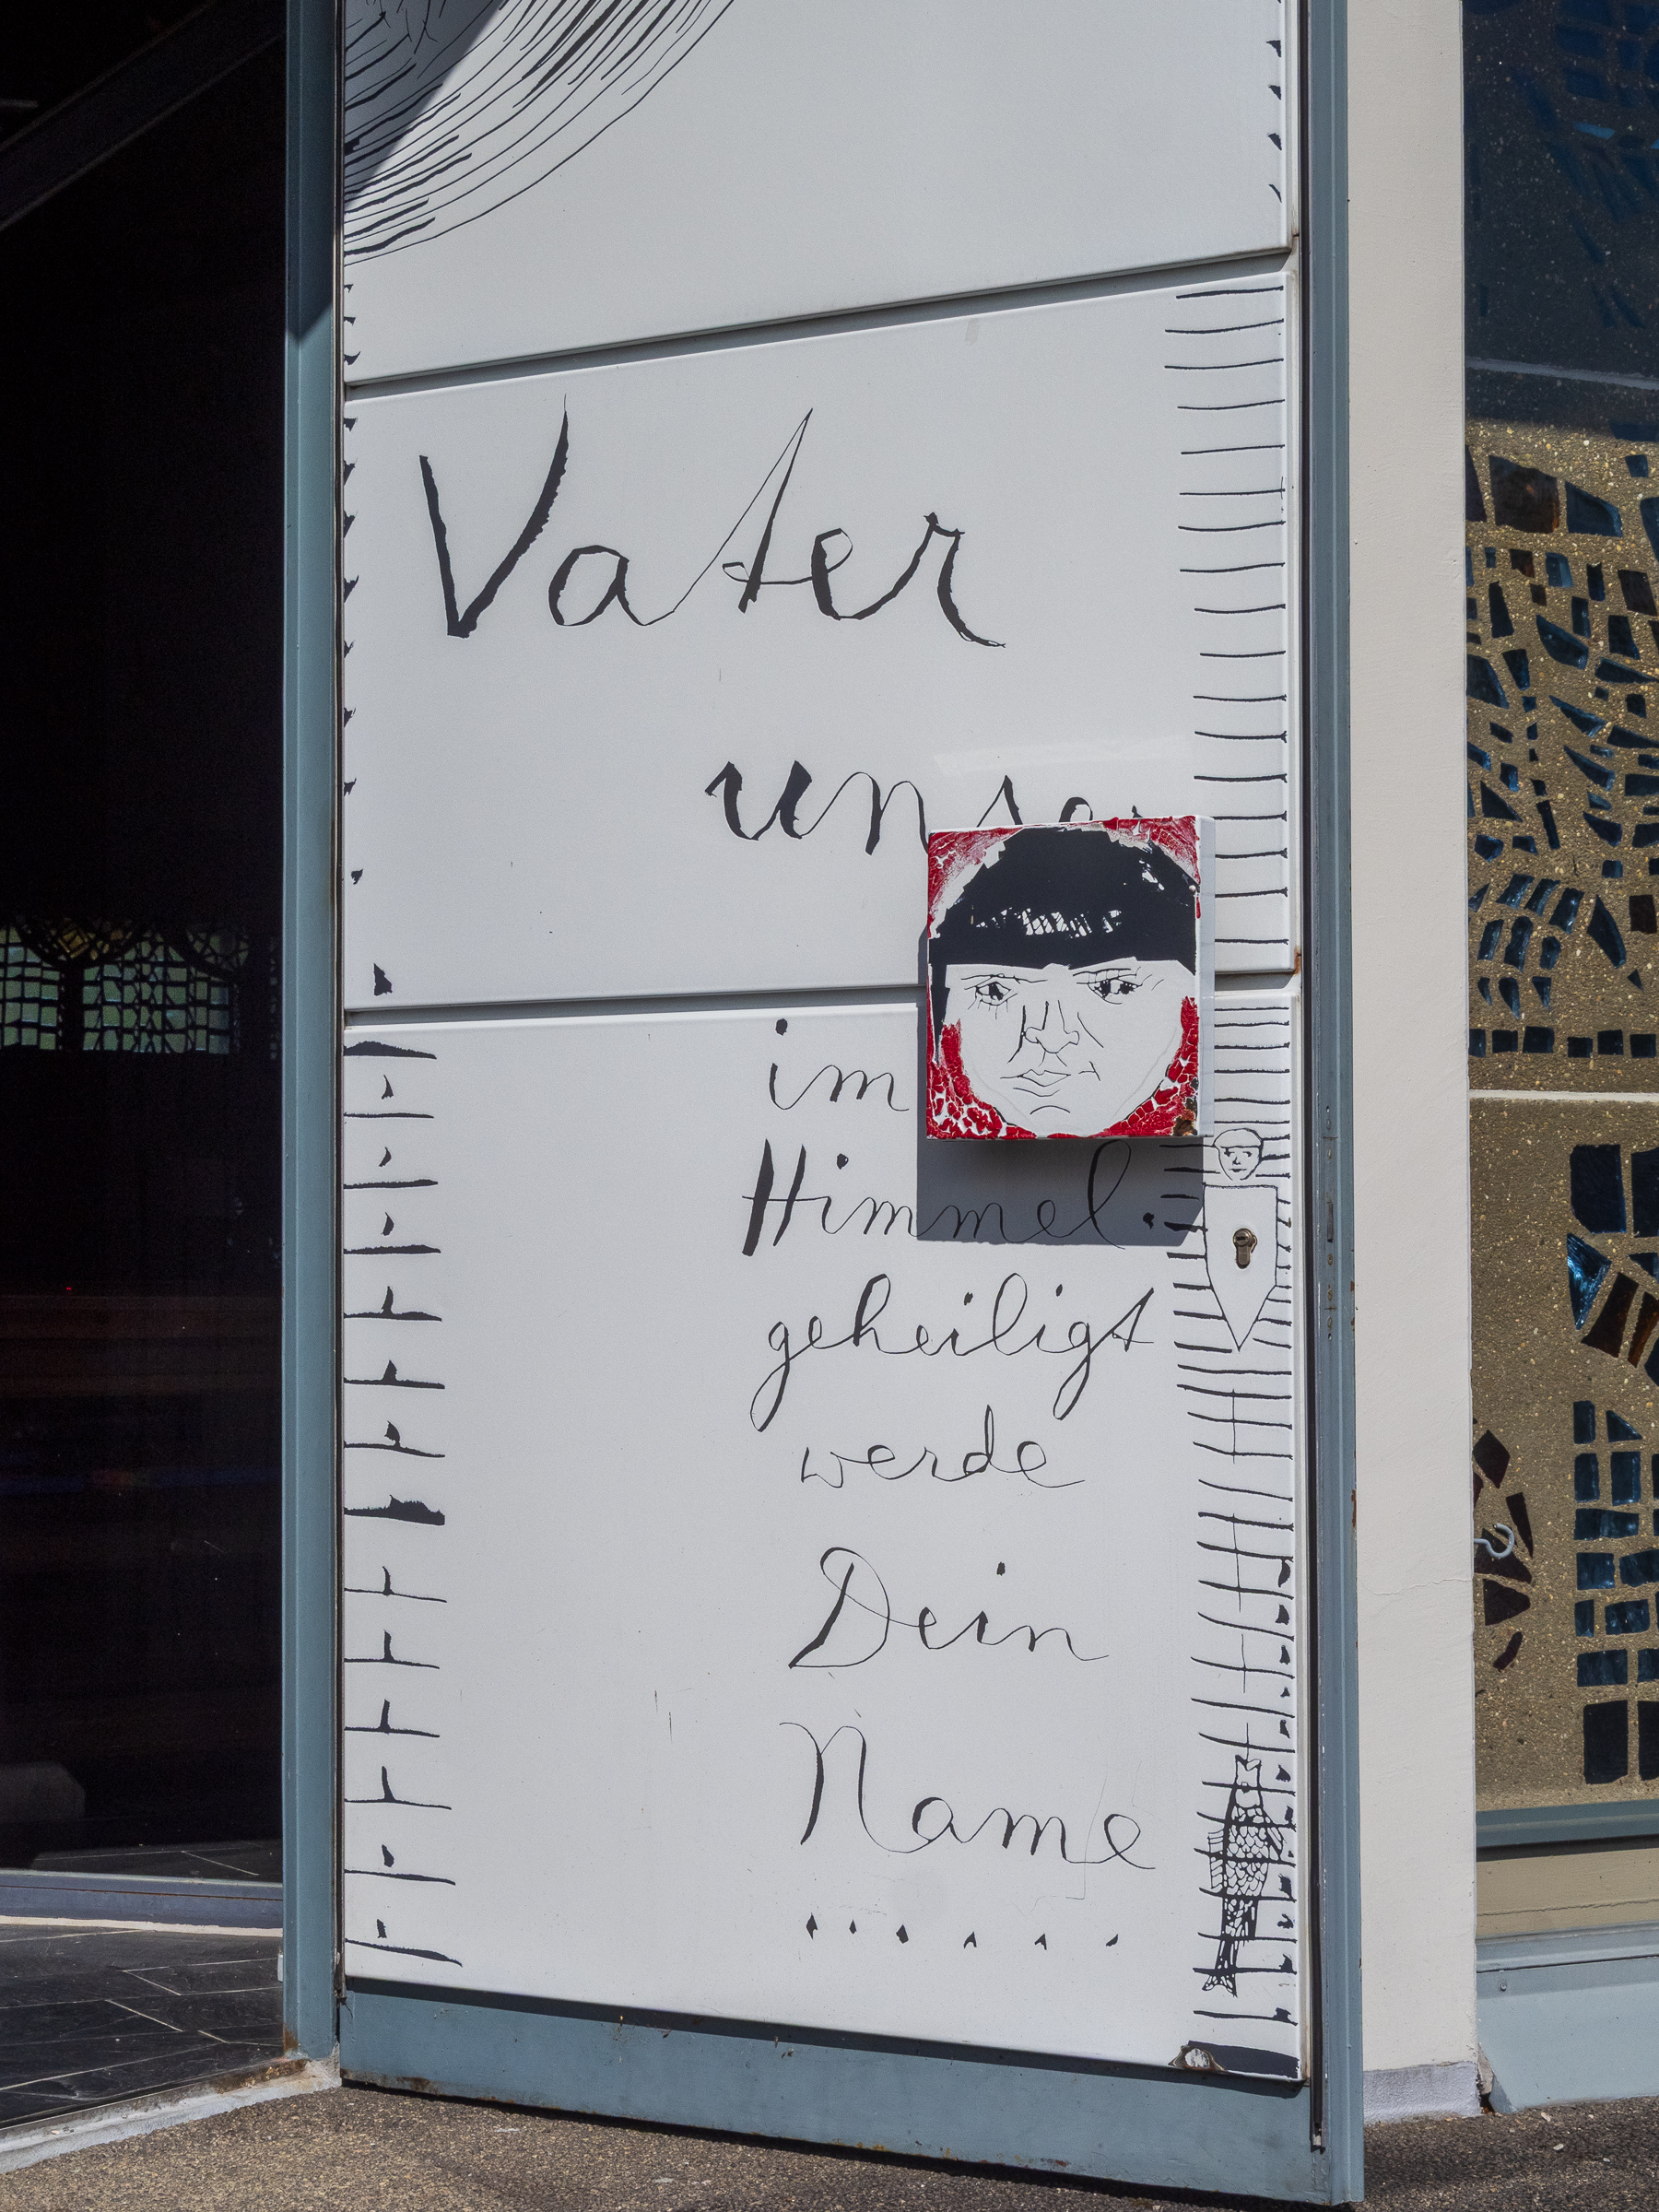 Vater
unser
im
Himmel.
geheiligt
werde
Dein
Name
......